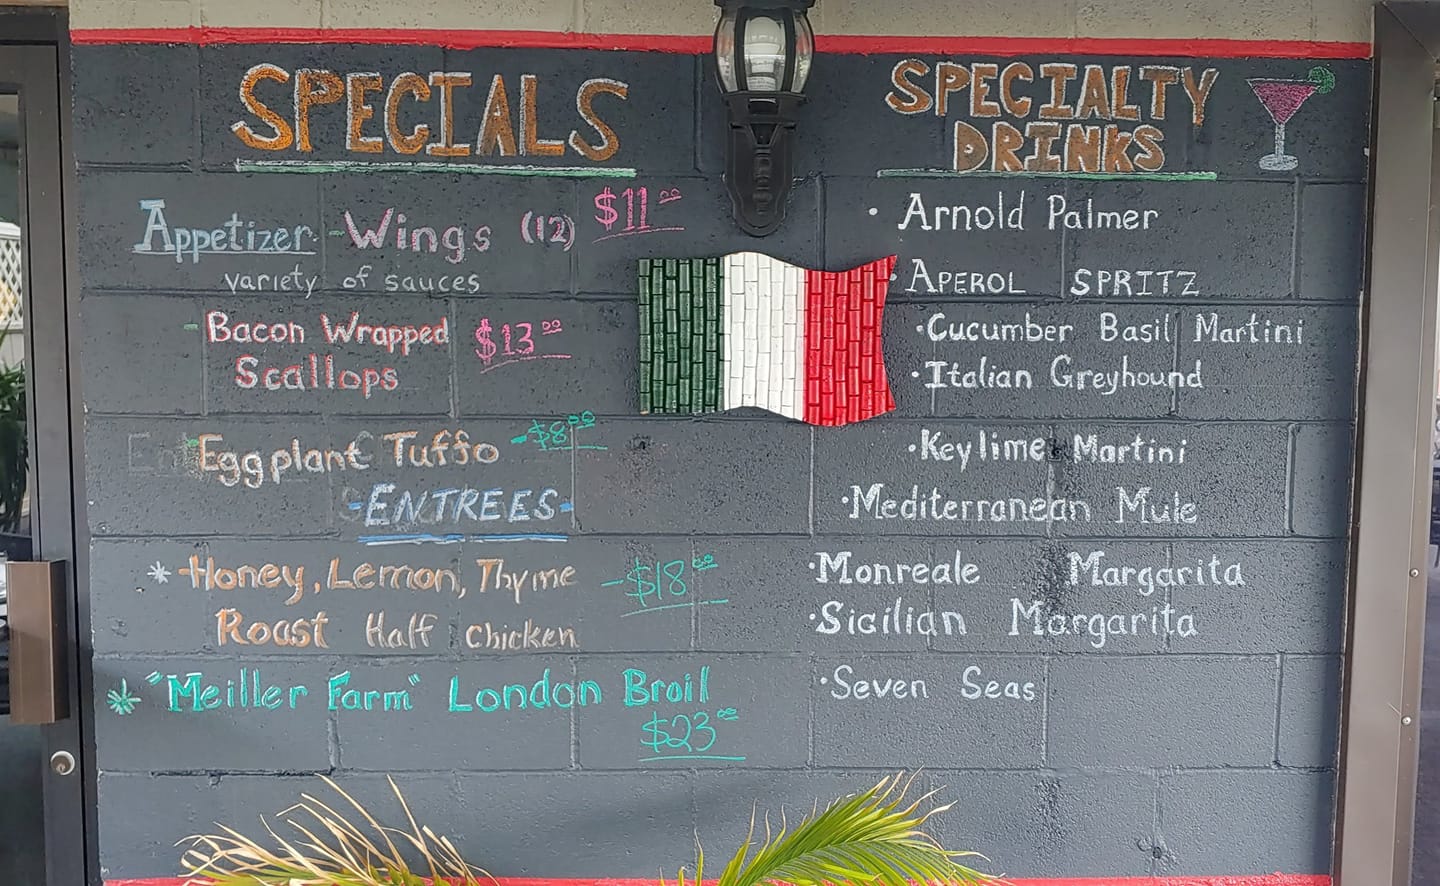 SPECIALS
Appetizer - Wings (12) $11.00
variety of sauces
- Bacon Wrapped $13.00
Scallops
- Eggplant Tuffo - $8.00
-ENTREES-
* Honey, Lemon, Thyme - $18.00
Roast Half Chicken
* "Meiller Farm" London Broil
$23.00
SPECIALTY
DRINKS
· Arnold Palmer
· APEROL SPRITZ
· Cucumber Basil Martini
· Italian Greyhound
· Keylime Martini
· Mediterranean Mule
· Monreale Margarita
· Sicilian Margarita
· Seven Seas